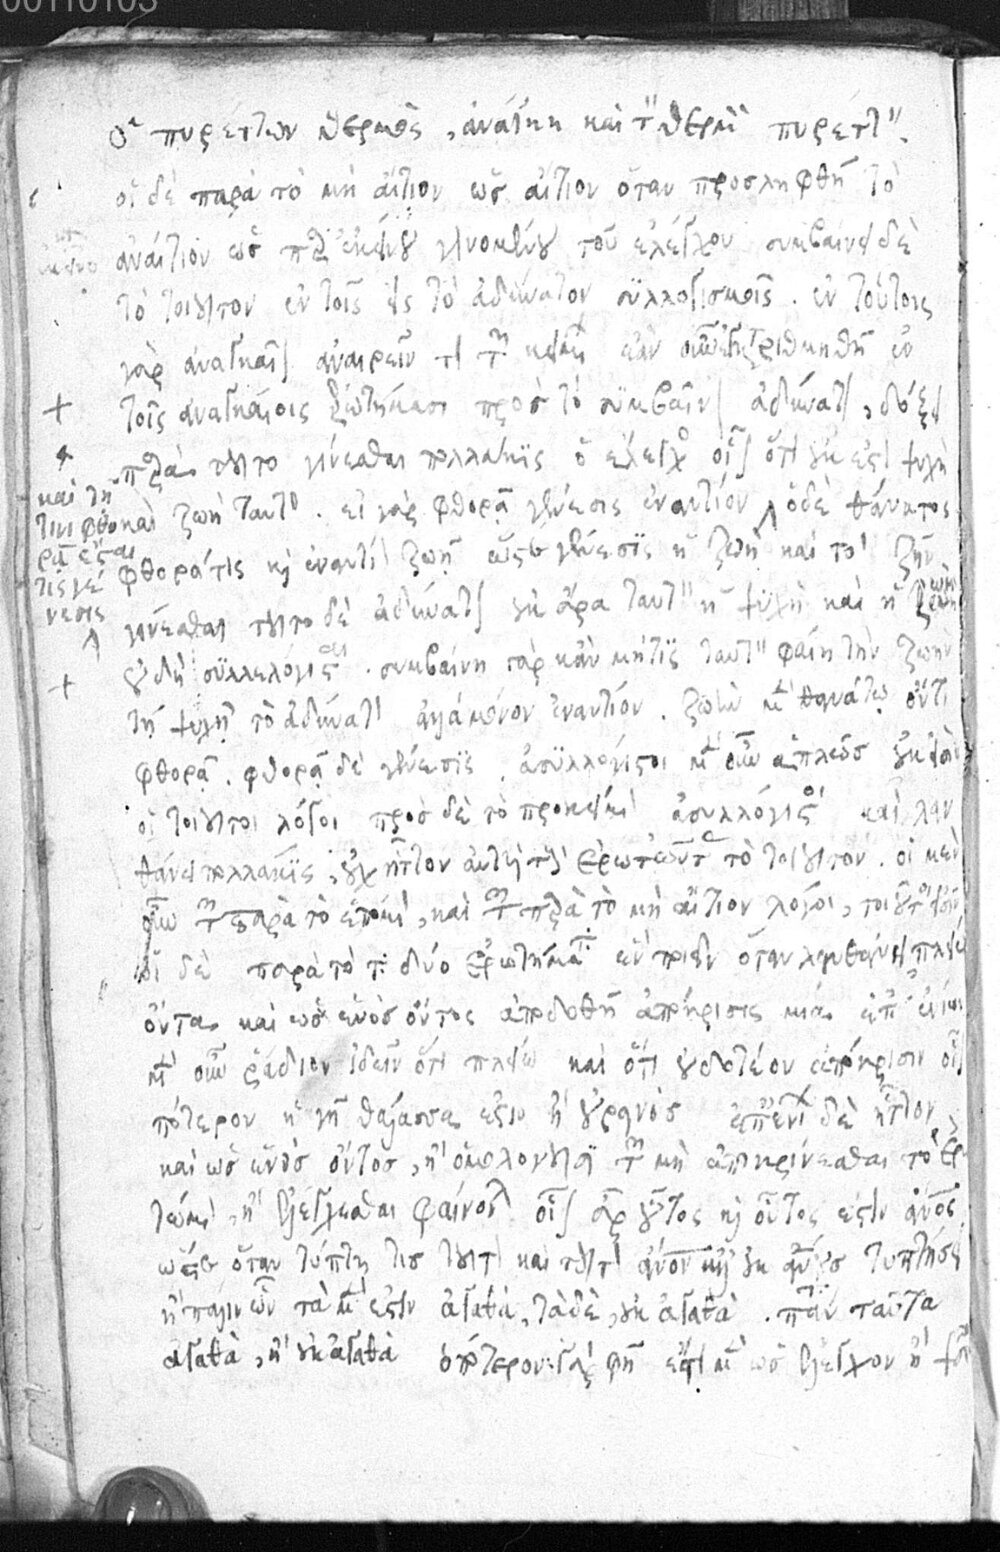 00110103
ὁ πυρέττων θερμὸς, ἀνάγκη καὶ τὸν θερμὸν πυρέττειν.
οἱ δὲ παρὰ τὸ μὴ αἴτιον ὡς αἴτιον ὅταν προσληφθῆ τὸ
ἀναίτιον ὡς παρ' ἐκεῖνο γινομένου τοῦ ἐλέγχου συμβαίνει δὲ
τὸ τοιοῦτον ἐν τοῖς εἰς τὸ ἀδύνατον συλλογισμοῖς. ἐν τούτοις
γὰρ ἀναγκαῖον ἀναιρεῖν τι τῶν κειμένων ἐὰν οὖν ἐγκαταριθμηθῆ ἐν
τοῖς ἀναγκαίοις ἐρωτήμασι πρὸς τὸ συμβαῖνον ἀδύνατον, δόξει
παρὰ τοῦτο γίνεσθαι πολλάκις ὁ ἔλεγχος οἷον ὅτι οὐκ ἔστι ψυχὴ
καὶ ζωὴ ταυτὸ. εἰ γὰρ φθορᾷ γένεσις ἐναντίον ὁ δὲ θάνατος
φθορά τις καὶ ἐναντίον ζωῇ ὥστε γένεσις ἡ ζωὴ καὶ τὸ ζῆν
γίνεσθαι τοῦτο δὲ ἀδύνατον οὐκ ἄρα ταυτὸν ἡ ψυχὴ καὶ ἡ ζωὴ
οὐ δὴ συλλελόγισται. συμβαίνει γὰρ κἂν μή τις ταυτὸν φαίη τὴν ζωὴν
τῇ ψυχῇ τὸ ἀδύνατον ἀλλὰ μόνον ἐναντίον. ζωὴν μὲν θανάτῳ ὄντι
φθορᾷ. φθορᾷ δὲ γένεσις. ἀσυλλόγιστοι μὲν οὖν ἁπλῶς οὐκ εἰσὶν
οἱ τοιοῦτοι λόγοι πρὸς δὲ τὸ προκείμενον ἀσυλλόγιστοι καὶ λαν
θάνει πολλάκις, οὐχ ἧττον αὐτοὺς τοὺς ἐρωτῶντας τὸ τοιοῦτον. οἱ μὲν
οὖν παρὰ τὸ ἑπόμενον, καὶ παρὰ τὸ μὴ αἴτιον λόγοι, τοιοῦτοί εἰσιν
οἱ δὲ παρὰ τὸ τὰ δύο ἐρωτήματα ἓν ποιεῖν ὅταν λανθάνη πλείω
ὄντα καὶ ὡς ἑνὸς ὄντος ἀποδοθῆ ἀπόκρισις μία. ἐπ' ἐνίων
μὲν οὖν ῥάδιον ἰδεῖν ὅτι πλείω καὶ ὅτι οὐ δοτέον ἀπόκρισιν οἷον
πότερον ἡ γῆ θάλασσα ἐστιν ἢ οὐρανὸς ἐπ' ἐνίων δὲ ἧττον
καὶ ὡς ἑνὸς ὄντος, ἢ ὁμολογοῦσι τῷ μὴ ἀποκρίνεσθαι τὸ ἐρ
τώμενον, ἢ ἐλέγχεσθαι φαίνονται οἷον ἆρ' οὗτος καὶ οὗτος ἐστιν ἄνθρωπος
ὥστε ὅταν τύπτη τις τοῦτον καὶ τοῦτον ἄνθρωπον ἀλλ' οὐκ ἀνθρώπους τυπτήσει
ἢ πάλιν ὧν τὰ μὲν ἐστιν ἀγαθὰ, τὰ δὲ, οὐκ ἀγαθὰ. πάντα ταῦτα
ἀγαθὰ, ἢ οὐκ ἀγαθὰ ὁπότερον γὰρ φῆ ἔστι μὲν ὡς ἔλεγχον ἢ
καὶ τη
τινι φθο
ρᾷ ἐς
τις γέ
νεσις